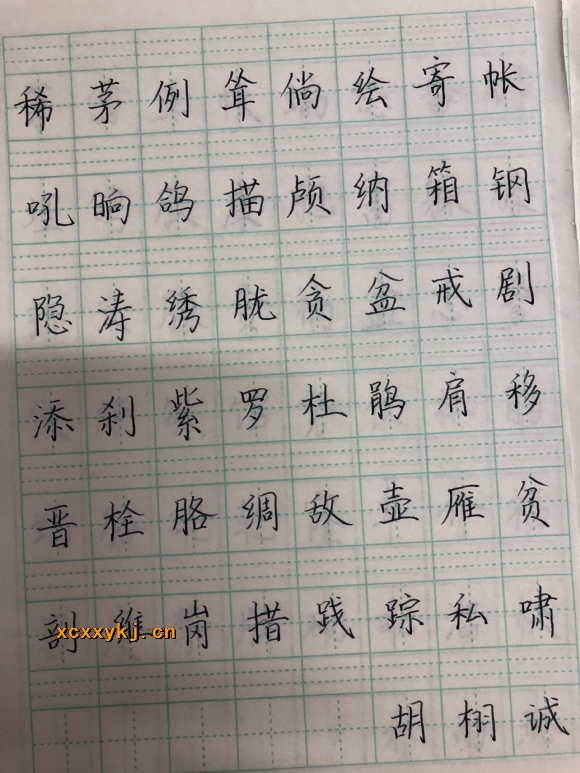 稀茅例耸倘绘寄帐
吼晌鸽描颅纳箱钢
隐涛绣胧贪盆戒剧
添刹紫罗杜鹃肩移
晋栓胳绸敌壶雁贫
剖维岗措践踪私啸
xcxxykj.cn
胡栩诚